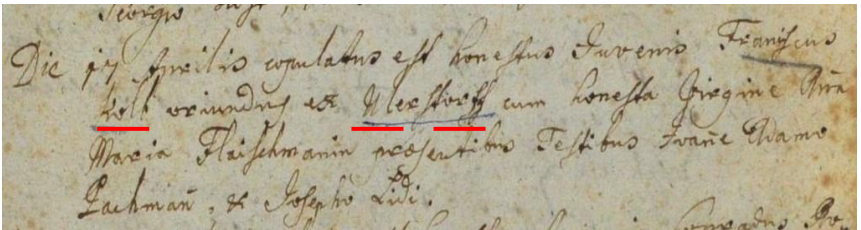 Georgio
Die 17 Aprilis copulatus est honestus Juvenis Franiscus
Kolb oriundus ex Merstorff cum honesta Virgine Aña
Maria Flaischmanin præsentibus Testibus Joañe Adamo
Pachmañ, & Josepho Lidi.
Conradus